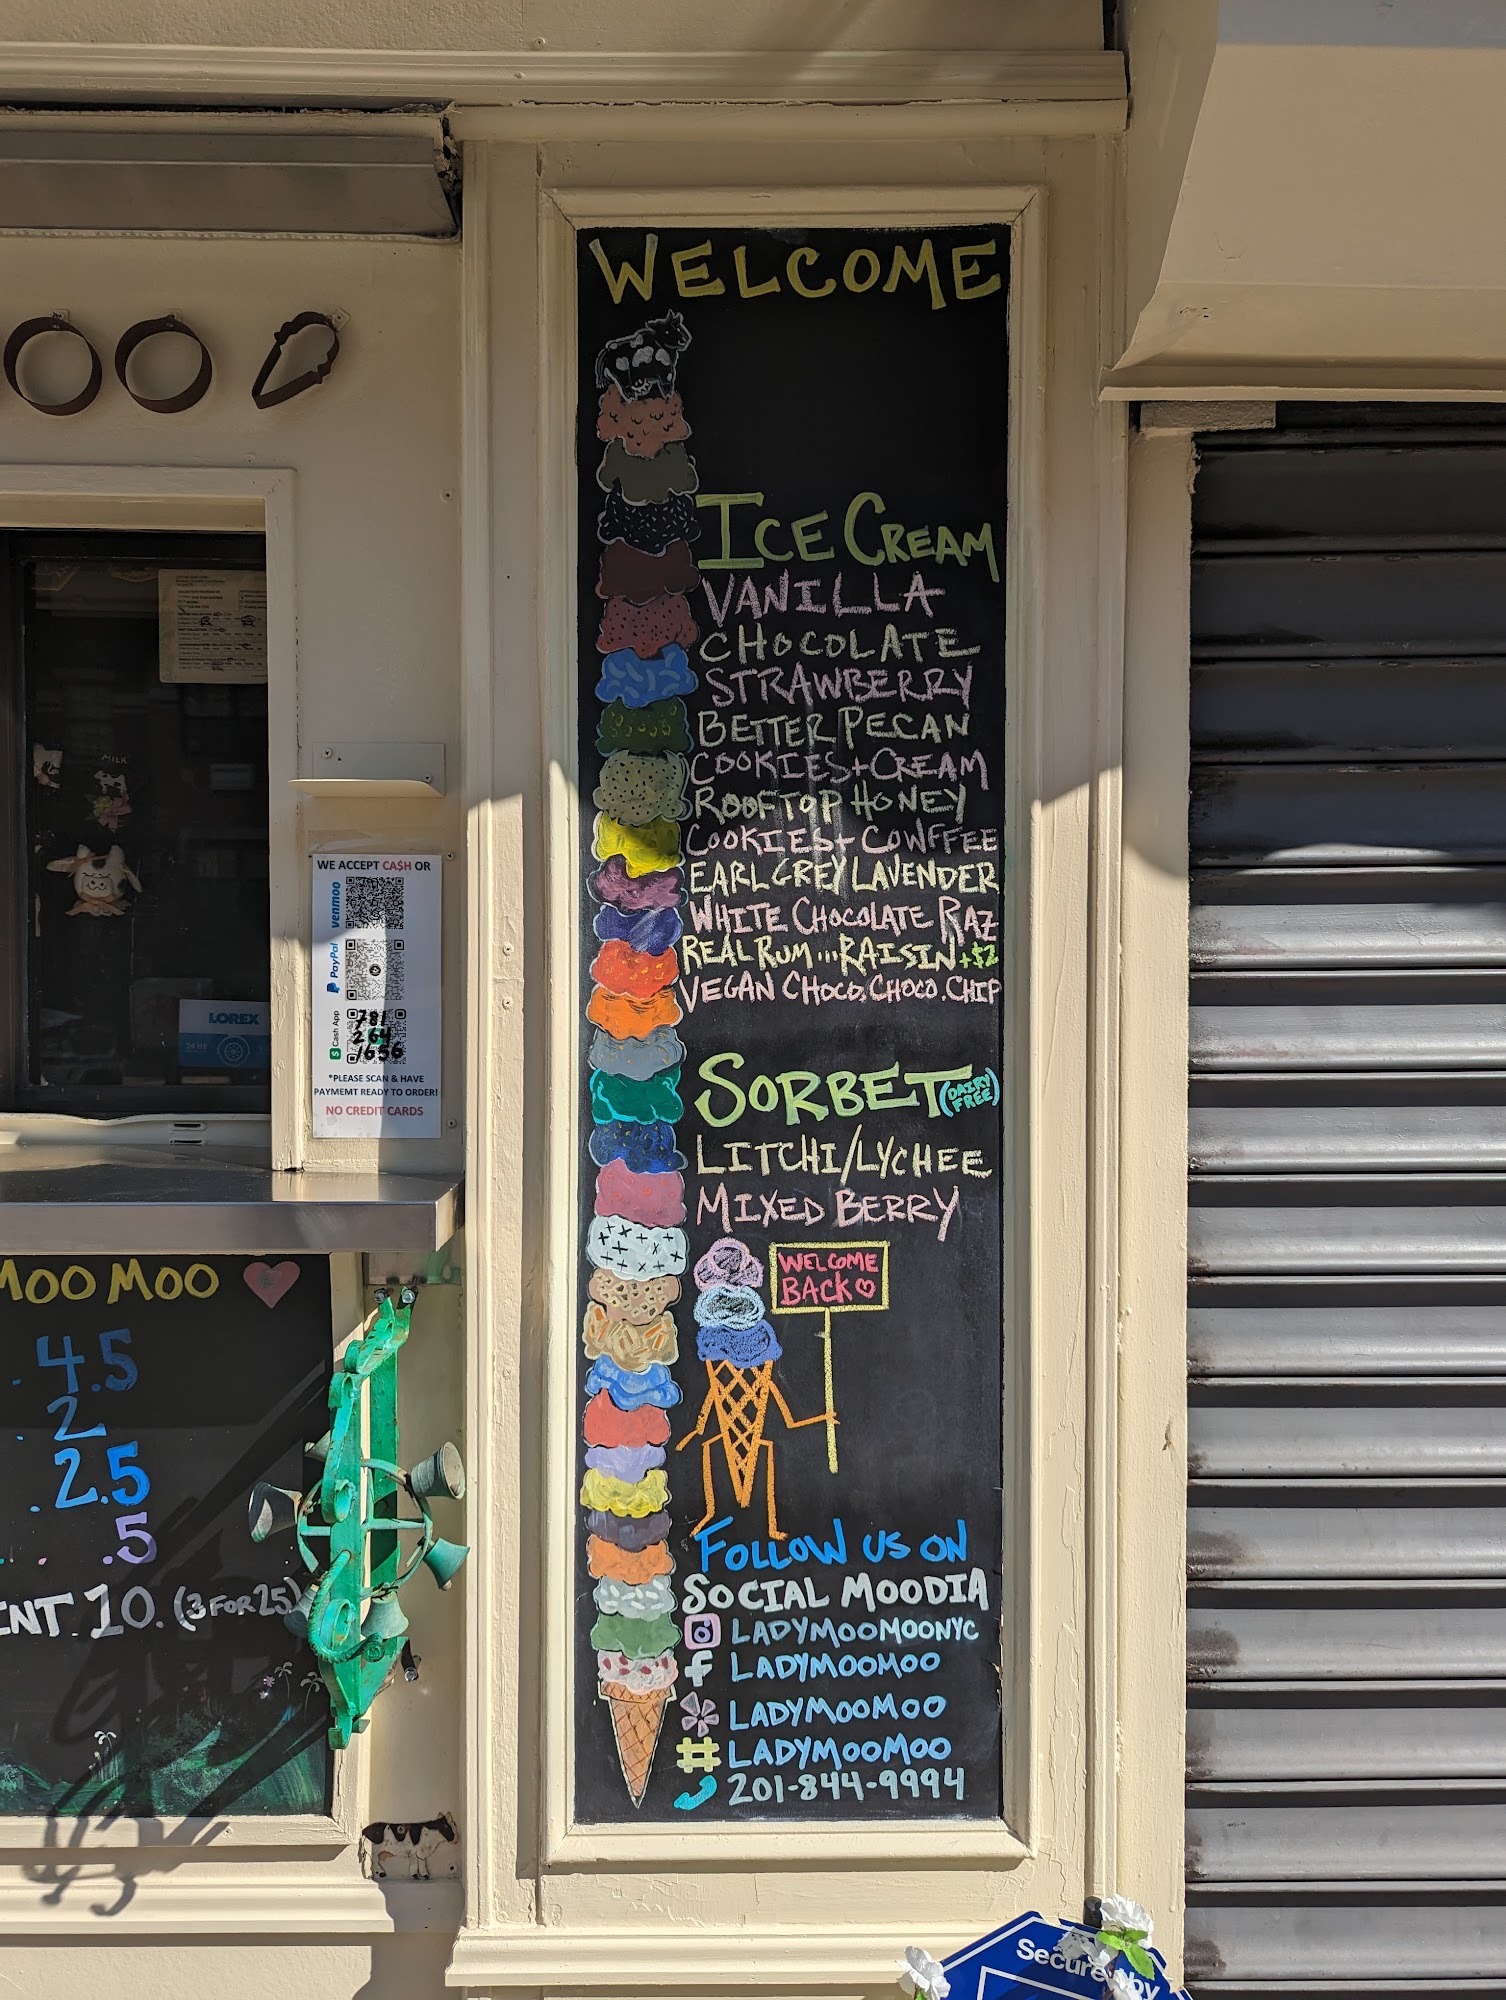 WELCOME
ICE CREAM
VANILLA
CHOCOLATE
STRAWBERRY
BETTER PECAN
COOKIES + CREAM
ROOFTOP HONEY
COOKIES + COWFFEE
EARL GREY LAVENDER
WHITE CHOCOLATE RAZ
REAL RUM...RAISIN +$2
VEGAN CHOCO. CHOCO. CHIP
SORBET (DAIRY FREE)
LITCHI/LYCHEE
MIXED BERRY
WELCOME
BACK
FOLLOW US ON
SOCIAL MOODIA
LADYMOOMOONYC
f LADYMOOMOO
LADYMOOMOO
# LADYMOOMOO
201-844-9994
OO
MILK
LOREX
24 HR
WE ACCEPT CA$H OR
venmoo
PayPal
$ Cash App
781
264
1656
*PLEASE SCAN & HAVE
PAYMEMT READY TO ORDER!
NO CREDIT CARDS
MOO MOO
. 4.5
2
. 2.5
. . .5
INT. 10. (3 FOR 25)
Secured by